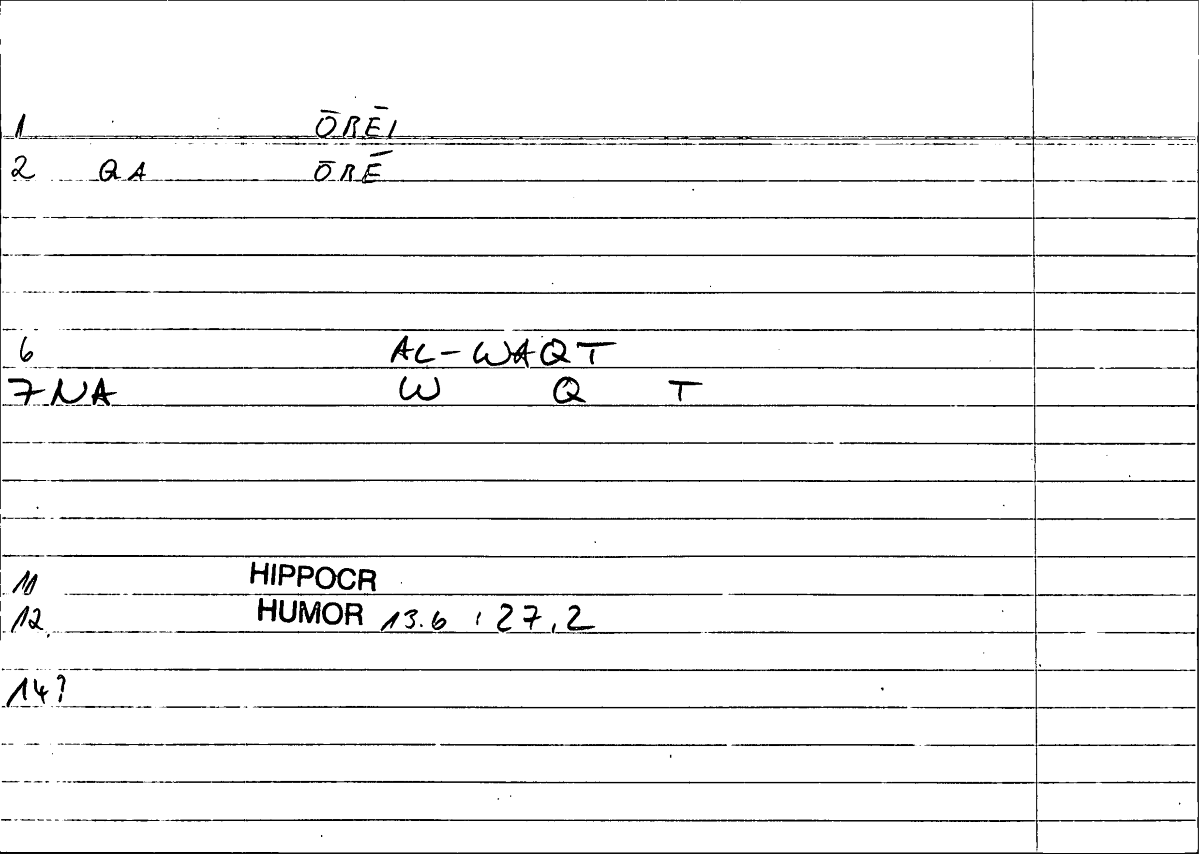 1 ŌRĒI
2 QA ŌRĒ
6 AL-WAQT
7 NA W Q T
11 HIPPOCR
12 HUMOR 13.6 : 27,2
14?